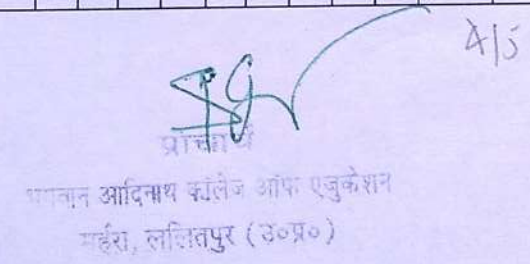 4/5
प्राचार्य
भगवान आदिनाथ कॉलेज ऑफ एजुकेशन
महर्रा, ललितपुर (उ०प्र०)